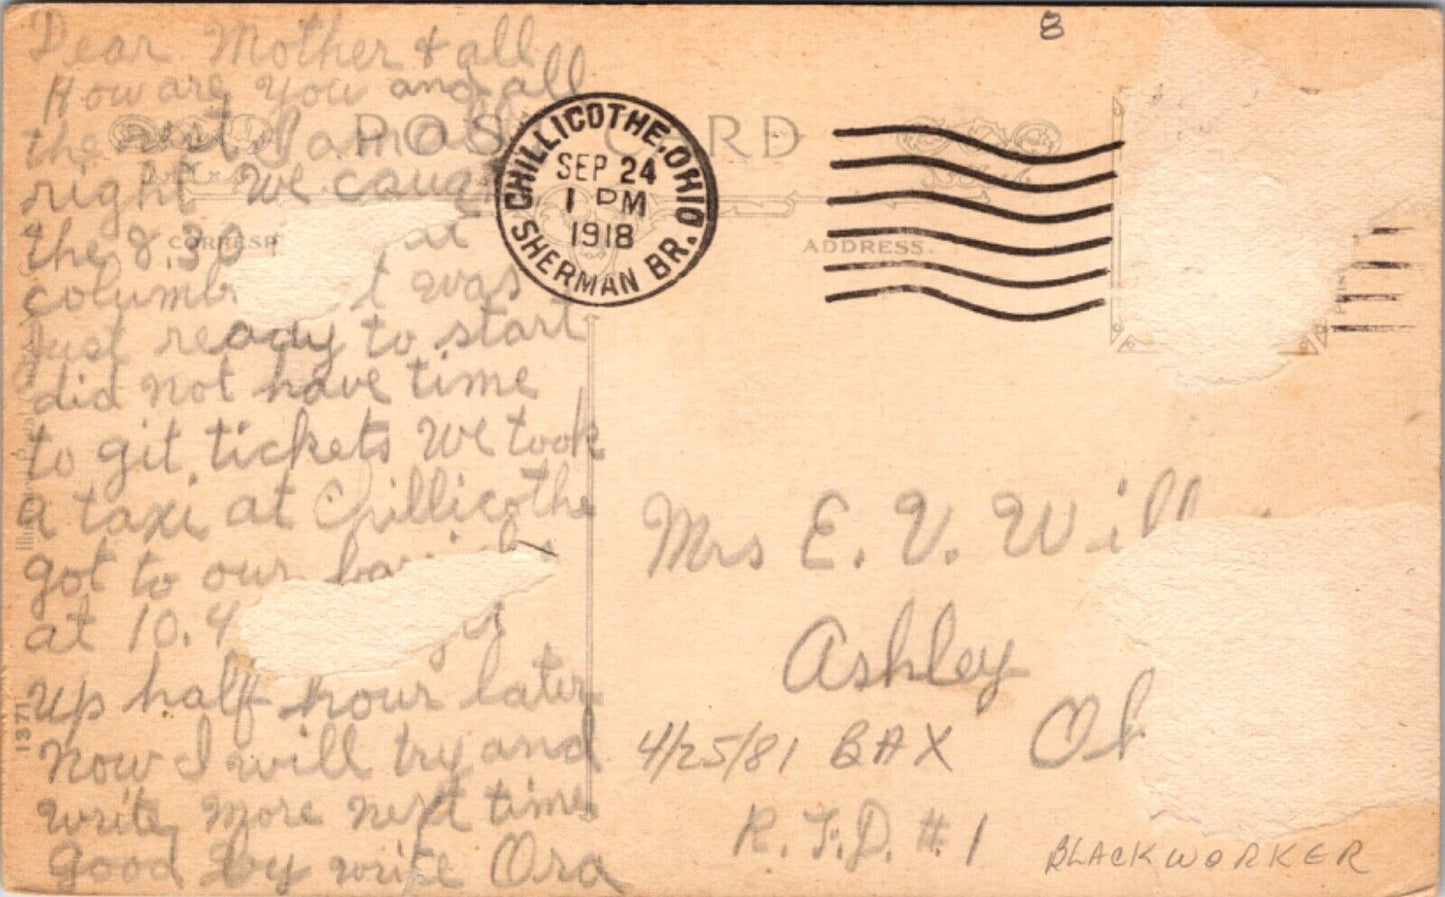 Dear Mother & all
How are you and all
the rest I am all
right We caught
the 8.30 at
columb t was
just ready to start
did not have time
to git tickets We took
a taxi at Chillicothe
got to our
at 10.4 git
up half hour later
Now I will try and
write more next time
good by write Ora
POST CARD
CORRESP
ADDRESS.
1371
CHILLICOTHE, OHIO
SEP 24
1 PM
1918
SHERMAN BR.
8
Mrs E. V. Will
Ashley
Oh
4/25/81 BAX
R.F.D. # 1
BLACKWORKER